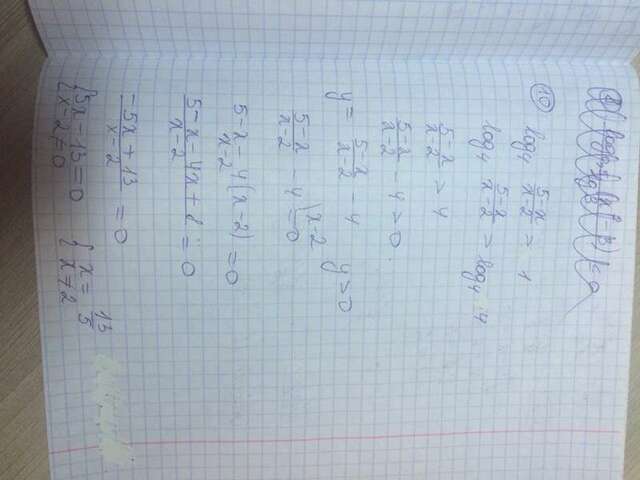 10) log₄ (5-x)/(x-2) > 1
log₄ (5-x)/(x-2) > log₄ 4
(5-x)/(x-2) > 4
(5-x)/(x-2) - 4 > 0.
y = (5-x)/(x-2) - 4 y > 0
(5-x)/(x-2) - 4 = 0 \x-2
(5-x-4(x-2))/(x-2) = 0
(5-x-4x+8)/(x-2) = 0
(-5x+13)/(x-2) = 0
{5x-13=0 {x = 13/5
{x-2≠0 {x ≠ 2